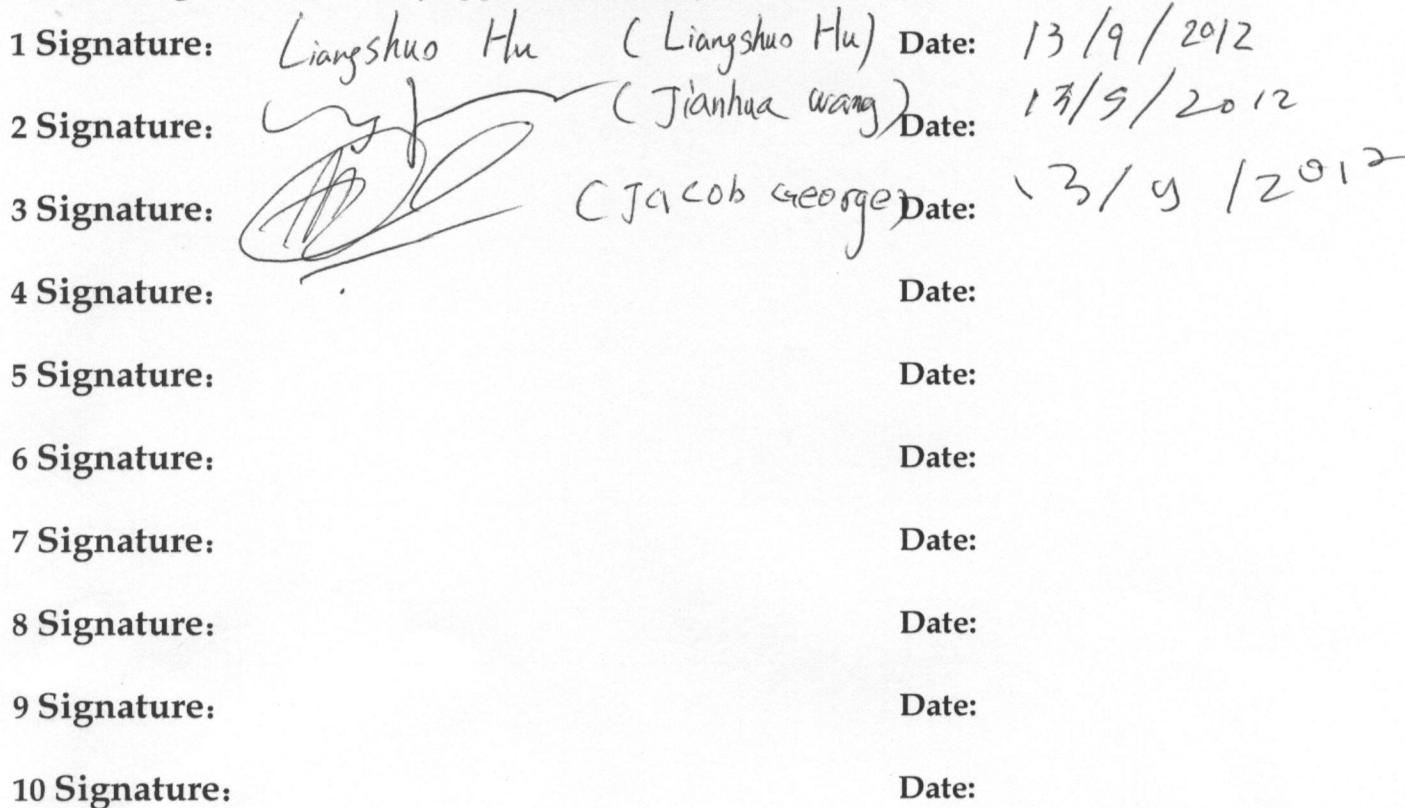 1 Signature: Liangshuo Hu (Liangshuo Hu) Date: 13/9/2012
2 Signature: (Jianhua wang) Date: 13/9/2012
3 Signature: (Jacob George) Date: 13/9/2012
4 Signature: Date:
5 Signature: Date:
6 Signature: Date:
7 Signature: Date:
8 Signature: Date:
9 Signature: Date:
10 Signature: Date: